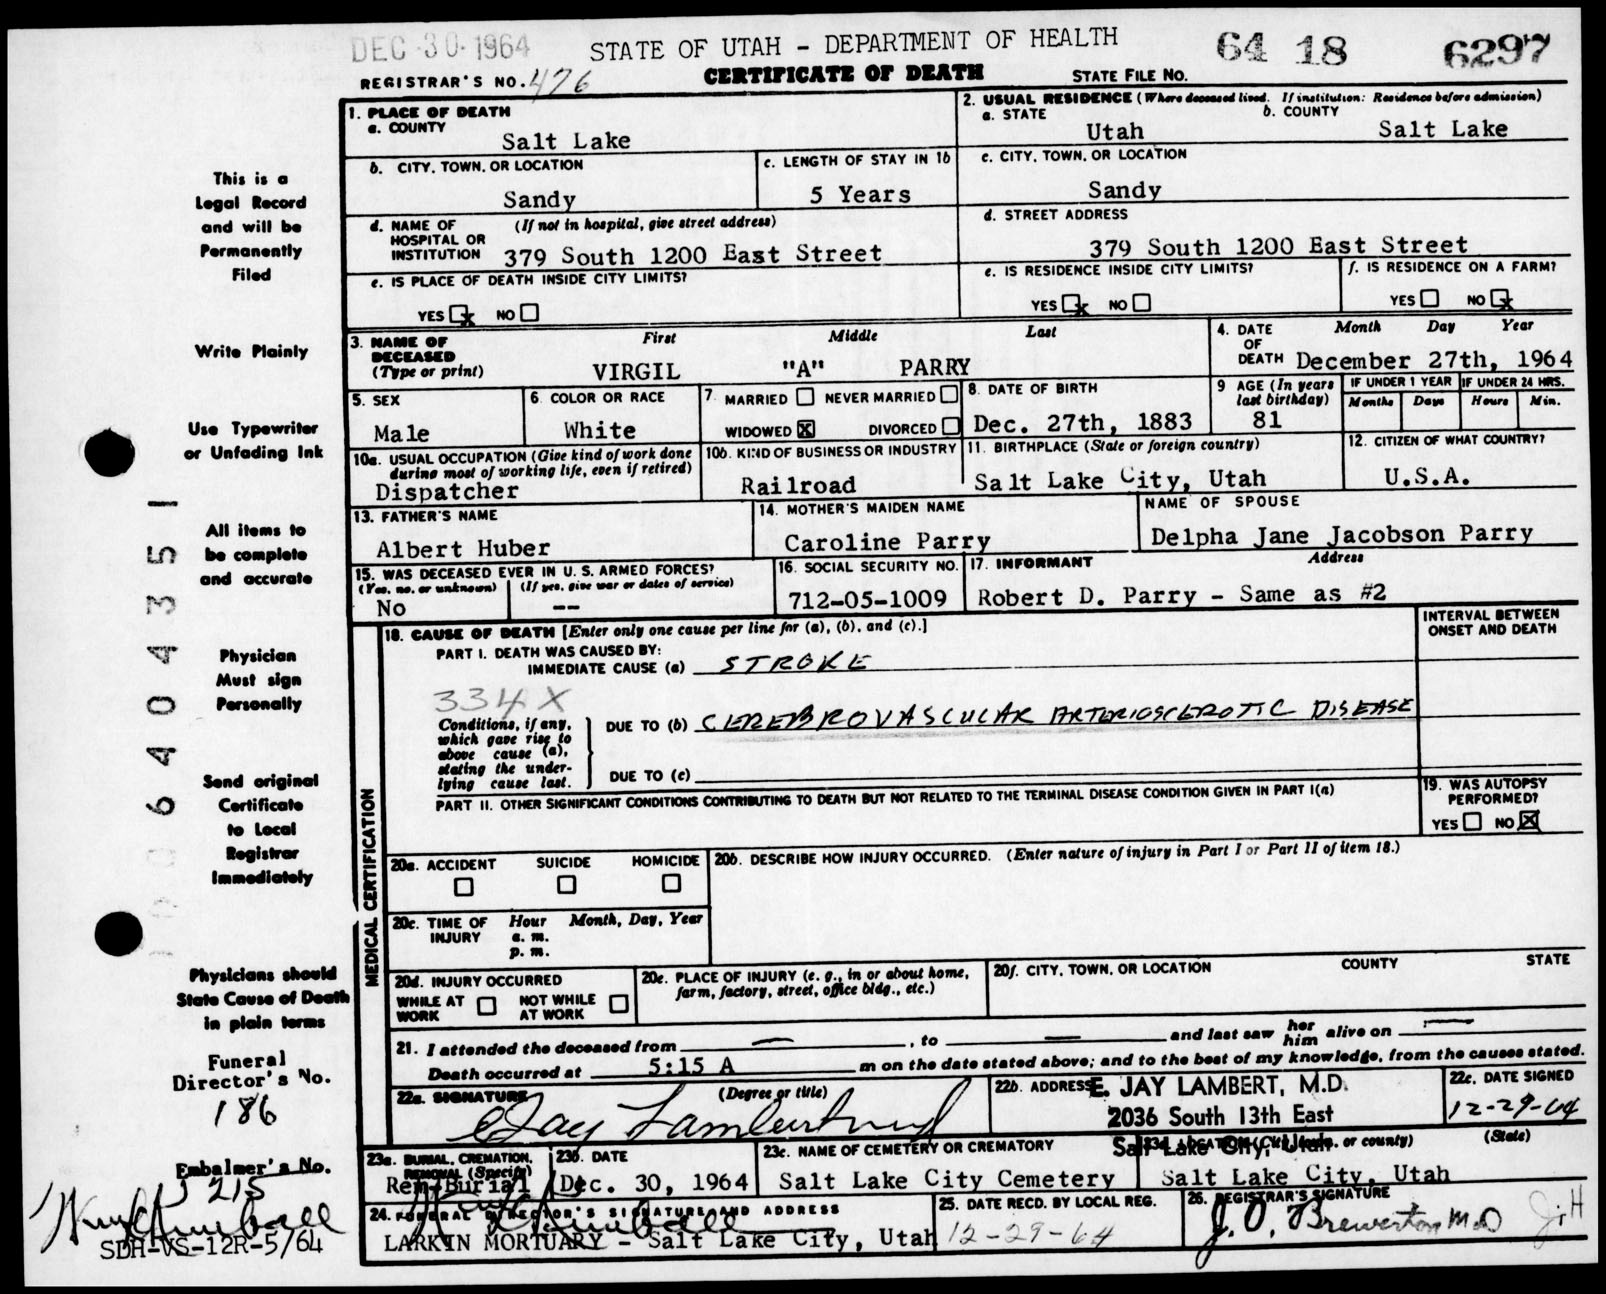 DEC 30 1964
STATE OF UTAH - DEPARTMENT OF HEALTH
64 18 6297
REGISTRAR'S NO. 476
CERTIFICATE OF DEATH
STATE FILE NO.
1. PLACE OF DEATH
a. COUNTY
Salt Lake
2. USUAL RESIDENCE (Where deceased lived. If institution: Residence before admission)
a. STATE
Utah
b. COUNTY
Salt Lake
b. CITY, TOWN, OR LOCATION
Sandy
c. LENGTH OF STAY IN 1b
5 Years
c. CITY, TOWN, OR LOCATION
Sandy
d. NAME OF HOSPITAL OR INSTITUTION (If not in hospital, give street address)
379 South 1200 East Street
d. STREET ADDRESS
379 South 1200 East Street
e. IS PLACE OF DEATH INSIDE CITY LIMITS?
YES x NO
e. IS RESIDENCE INSIDE CITY LIMITS?
YES x NO
f. IS RESIDENCE ON A FARM?
YES NO x
3. NAME OF DECEASED (Type or print)
First Middle Last
VIRGIL "A" PARRY
4. DATE OF DEATH
Month Day Year
December 27th, 1964
5. SEX
Male
6. COLOR OR RACE
White
7. MARRIED NEVER MARRIED
WIDOWED X DIVORCED
8. DATE OF BIRTH
Dec. 27th, 1883
9 AGE (In years last birthday)
81
IF UNDER 1 YEAR
Months Days
IF UNDER 24 HRS.
Hours Min.
10a. USUAL OCCUPATION (Give kind of work done during most of working life, even if retired)
Dispatcher
10b. KIND OF BUSINESS OR INDUSTRY
Railroad
11. BIRTHPLACE (State or foreign country)
Salt Lake City, Utah
12. CITIZEN OF WHAT COUNTRY?
U.S.A.
13. FATHER'S NAME
Albert Huber
14. MOTHER'S MAIDEN NAME
Caroline Parry
NAME OF SPOUSE
Delpha Jane Jacobson Parry
15. WAS DECEASED EVER IN U. S. ARMED FORCES?
(Yes, no, or unknown) (If yes, give war or dates of service)
No --
16. SOCIAL SECURITY NO.
712-05-1009
17. INFORMANT Address
Robert D. Parry - Same as #2
MEDICAL CERTIFICATION
18. CAUSE OF DEATH [Enter only one cause per line for (a), (b), and (c).]
INTERVAL BETWEEN ONSET AND DEATH
PART I. DEATH WAS CAUSED BY:
IMMEDIATE CAUSE (a) STROKE
334X
Conditions, if any, which gave rise to above cause (a), stating the underlying cause last.
DUE TO (b) CEREBROVASCULAR ARTERIOSCLEROTIC DISEASE
DUE TO (c)
PART II. OTHER SIGNIFICANT CONDITIONS CONTRIBUTING TO DEATH BUT NOT RELATED TO THE TERMINAL DISEASE CONDITION GIVEN IN PART I(a)
19. WAS AUTOPSY PERFORMED?
YES NO X
20a. ACCIDENT SUICIDE HOMICIDE
20b. DESCRIBE HOW INJURY OCCURRED. (Enter nature of injury in Part I or Part II of item 18.)
20c. TIME OF INJURY Hour Month, Day, Year
a. m.
p. m.
20d. INJURY OCCURRED
WHILE AT WORK NOT WHILE AT WORK
20e. PLACE OF INJURY (e. g., in or about home, farm, factory, street, office bldg., etc.)
20f. CITY, TOWN, OR LOCATION COUNTY STATE
21. I attended the deceased from — , to — and last saw her him alive on —
Death occurred at 5:15 A m on the date stated above; and to the best of my knowledge, from the causes stated.
22a. SIGNATURE (Degree or title)
E Jay Lambert md
22b. ADDRESS
E. JAY LAMBERT, M.D.
2036 South 13th East
Salt Lake City, Utah
22c. DATE SIGNED
12-29-64
23a. BURIAL, CREMATION, REMOVAL (Specify)
Rem-Burial
23b. DATE
Dec. 30, 1964
23c. NAME OF CEMETERY OR CREMATORY
Salt Lake City Cemetery
23d. LOCATION (City, town, or county) (State)
Salt Lake City, Utah
24. FUNERAL DIRECTOR'S SIGNATURE AND ADDRESS
LARKIN MORTUARY - Salt Lake City, Utah
25. DATE RECD. BY LOCAL REG.
12-29-64
26. REGISTRAR'S SIGNATURE
J. O. Brewerton MD JH
This is a
Legal Record
and will be
Permanently
Filed
Write Plainly
Use Typewriter
or Unfading Ink
All items to
be complete
and accurate
Physician
Must sign
Personally
Send original
Certificate
to Local
Registrar
Immediately
Physicians should
State Cause of Death
in plain terms
Funeral
Director's No.
186
Embalmer's No.
215
SDH-VS-12R-5/64